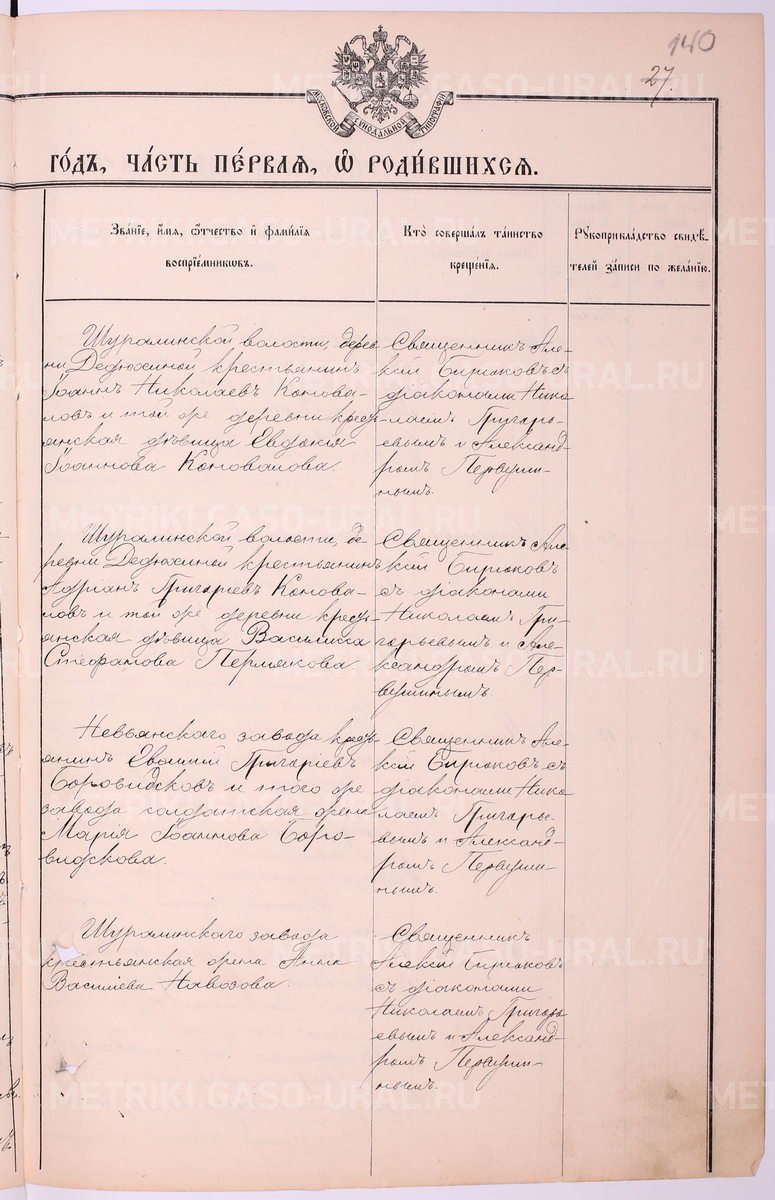 140
27.
МОСКОВСКОЙ СѴНОДАЛЬНОЙ ТИПОГРАФІИ
ГО́ДЪ, ЧА́СТЬ ПЕ́РВАѦ, Ѡ҆ РОДИ́ВШИХСѦ.
Зва́нїе, и҆́мѧ, ѻ҆́тчество и҆ фами́лїѧ
воспрїе́мникѡвъ.
Кто̀ соверша́лъ та́инство
креще́нїѧ.
Рꙋкоприкла́дство свидѣ́-
телей за́писи по жела́нїю.
Шуралинской волости, дерев
ни Дедюхиной крестьянинъ
Іоаннъ Николаевъ Конова-
ловъ и той же деревни крестъ
янская дѣвица Евдокія
Іоаннова Коновалова.
Священникъ Але-
ксій Бирюковъ съ
діаконами Нико
лаемъ Григорь-
евымъ и Александ-
ромъ Первушин-
нымъ.
Шуралинской волости, де-
ревни Дедюхиной крестьянинъ
Адріанъ Григоріевъ Конова-
ловъ и той же деревни крестъ
янская дѣвица Василиса
Стефанова Пермякова.
Священникъ Але-
ксій Бирюковъ
съ діаконами
Николаемъ Гри-
горьевымъ и Але-
ксандромъ Пер-
вушинымъ.
Невьянскаго завода крестъ
янинъ Евѳимій Григоріевъ
Боровидсковъ и того же
завода солдатская жена
Марія Іоаннова Боро-
видскова.
Священникъ Але-
ксій Бирюковъ съ
діаконами Нико
лаемъ Григорье-
вымъ и Александ-
ромъ Первушин-
нымъ.
Шуралинскаго завода
крестьянская жена Анна
Василіева Навозова.
Священникъ
Алексій Бирюковъ
съ діаконами
Николаемъ Григорь
евымъ и Александ-
ромъ Первушин-
нымъ.
METRIKI.GASO-URAL.RU